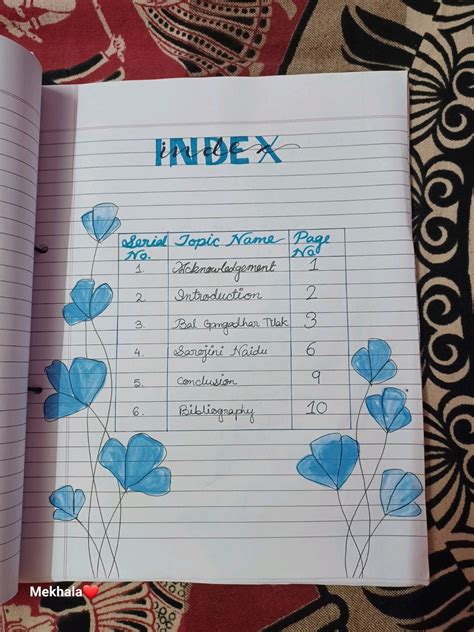 INDEX
index
Serial No. Topic Name Page No.
1. Acknowledgement 1
2. Introduction 2
3. Bal Gangadhar Tilak 3
4. Sarojini Naidu 6
5. Conclusion 9
6. Bibliography 10
Mekhala❤️